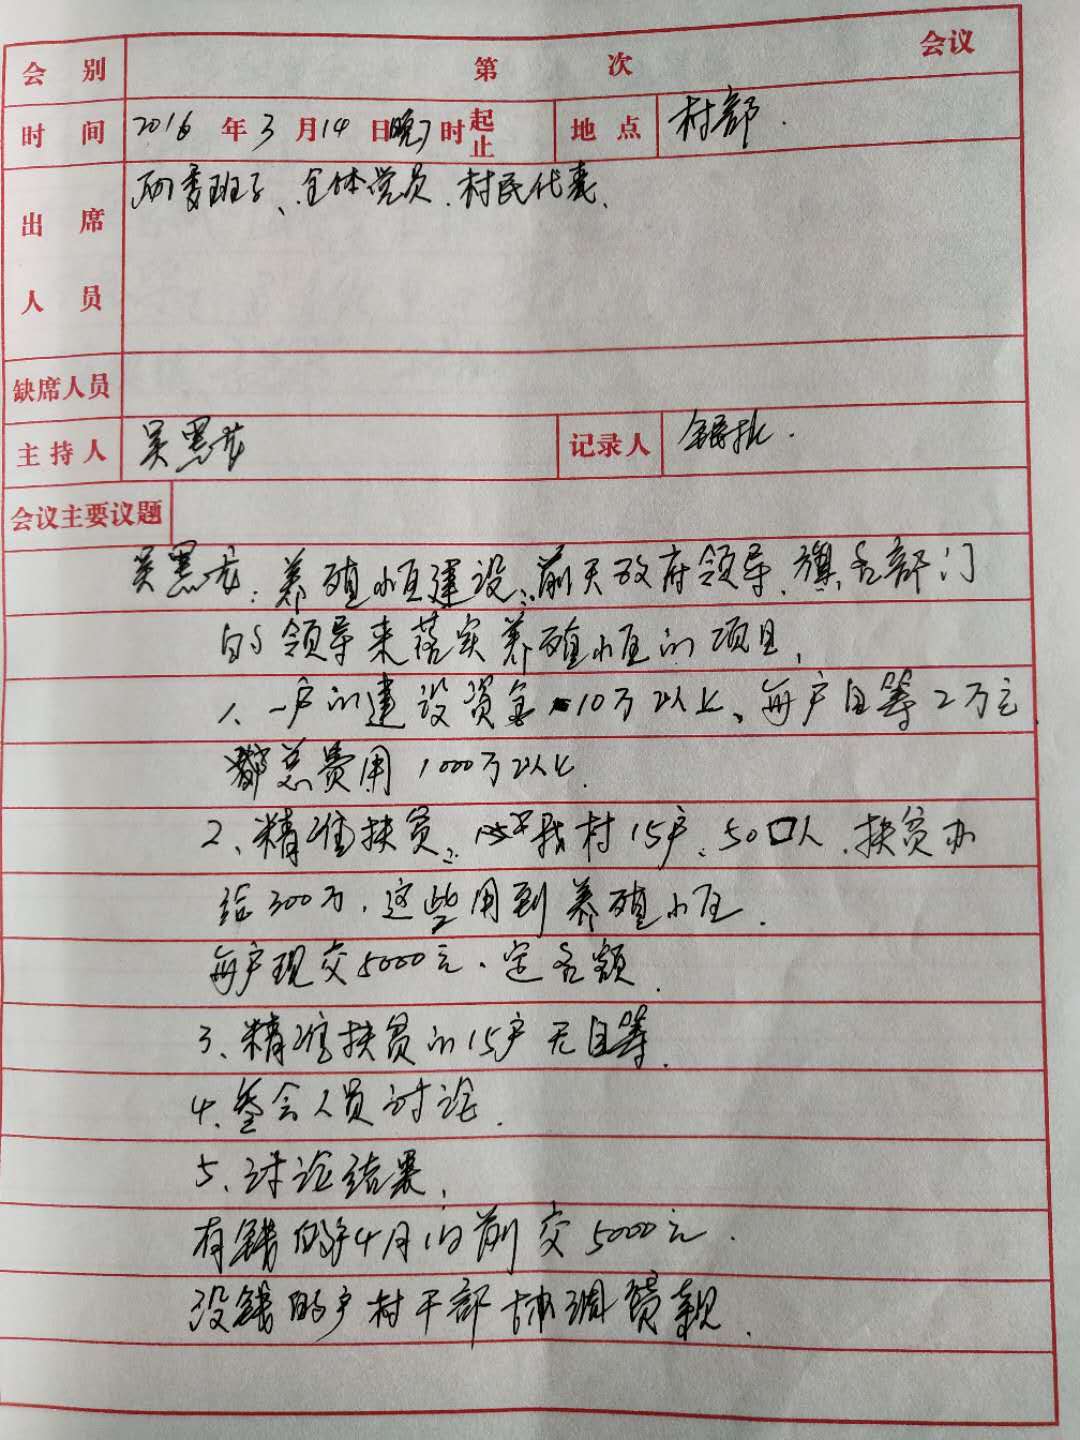 会别 第 次 会议
时间 2016年3月14日晚7时起止 地点 村部.
出席人员 两委班子、全体党员、村民代表、
缺席人员
主持人 吴黑龙 记录人
会议主要议题
吴黑龙:养殖小区建设、前天政府领导、旗各部门
的领导来落实养殖小区的项目、
1、一户的建设资金10万以上、每户自筹2万元
总费用1000万以上.
2、精准扶贫、我村15户、50口人、扶贫办
给300万、这些用到养殖小区.
每户现交5000元、定名额.
3、精准扶贫的15户无自筹.
4、参会人员讨论.
5、讨论结果、
有钱的户4月1日前交5000元.
没钱的户村干部协调贷款.